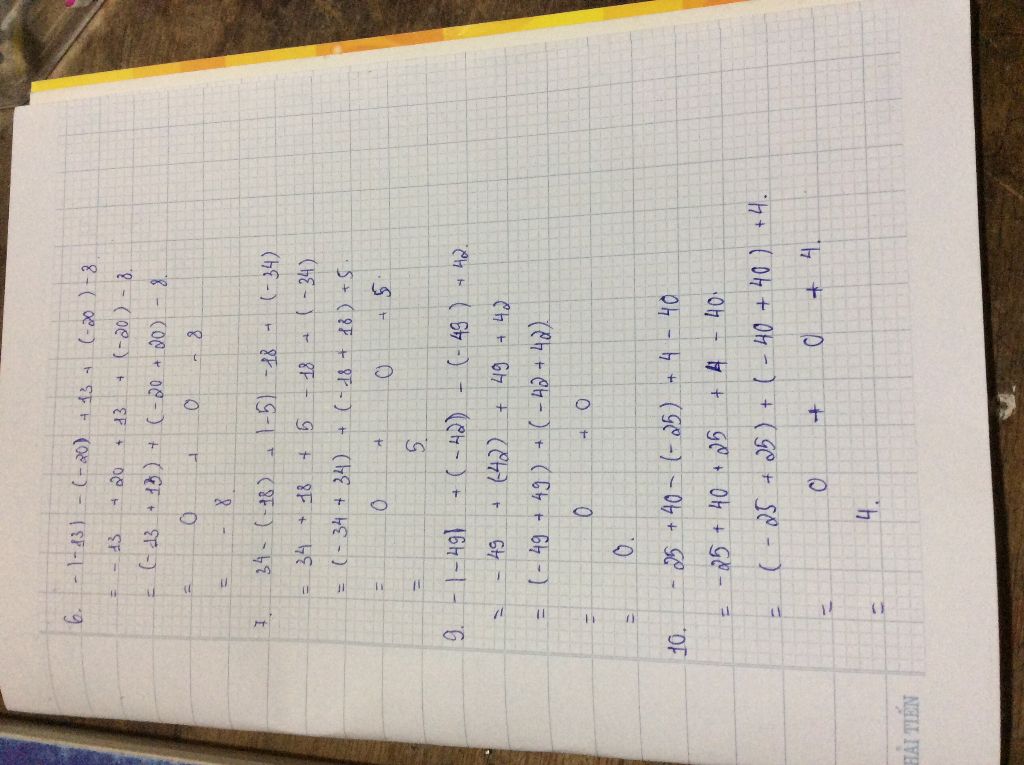 6. - |-13| - (-20) + 13 + (-20) - 8
= - 13 + 20 + 13 + (-20) - 8.
= (-13 + 13) + (-20 + 20) - 8.
= 0 + 0 - 8
= - 8
7. 34 - (-18) + |-5| - 18 + (-34)
= 34 + 18 + 5 - 18 + (-34)
= (-34 + 34) + (-18 + 18) + 5.
= 0 + 0 + 5.
= 5.
9. - |-49| + (-42) - (-49) + 42.
= - 49 + (42) + 49 + 42
= (-49 + 49) + (-42 + 42)
= 0 + 0
= 0.
10. - 25 + 40 - (-25) + 4 - 40
= - 25 + 40 + 25 + 4 - 40.
= (-25 + 25) + (-40 + 40) + 4.
= 0 + 0 + 4.
= 4.
HẢI TIẾN